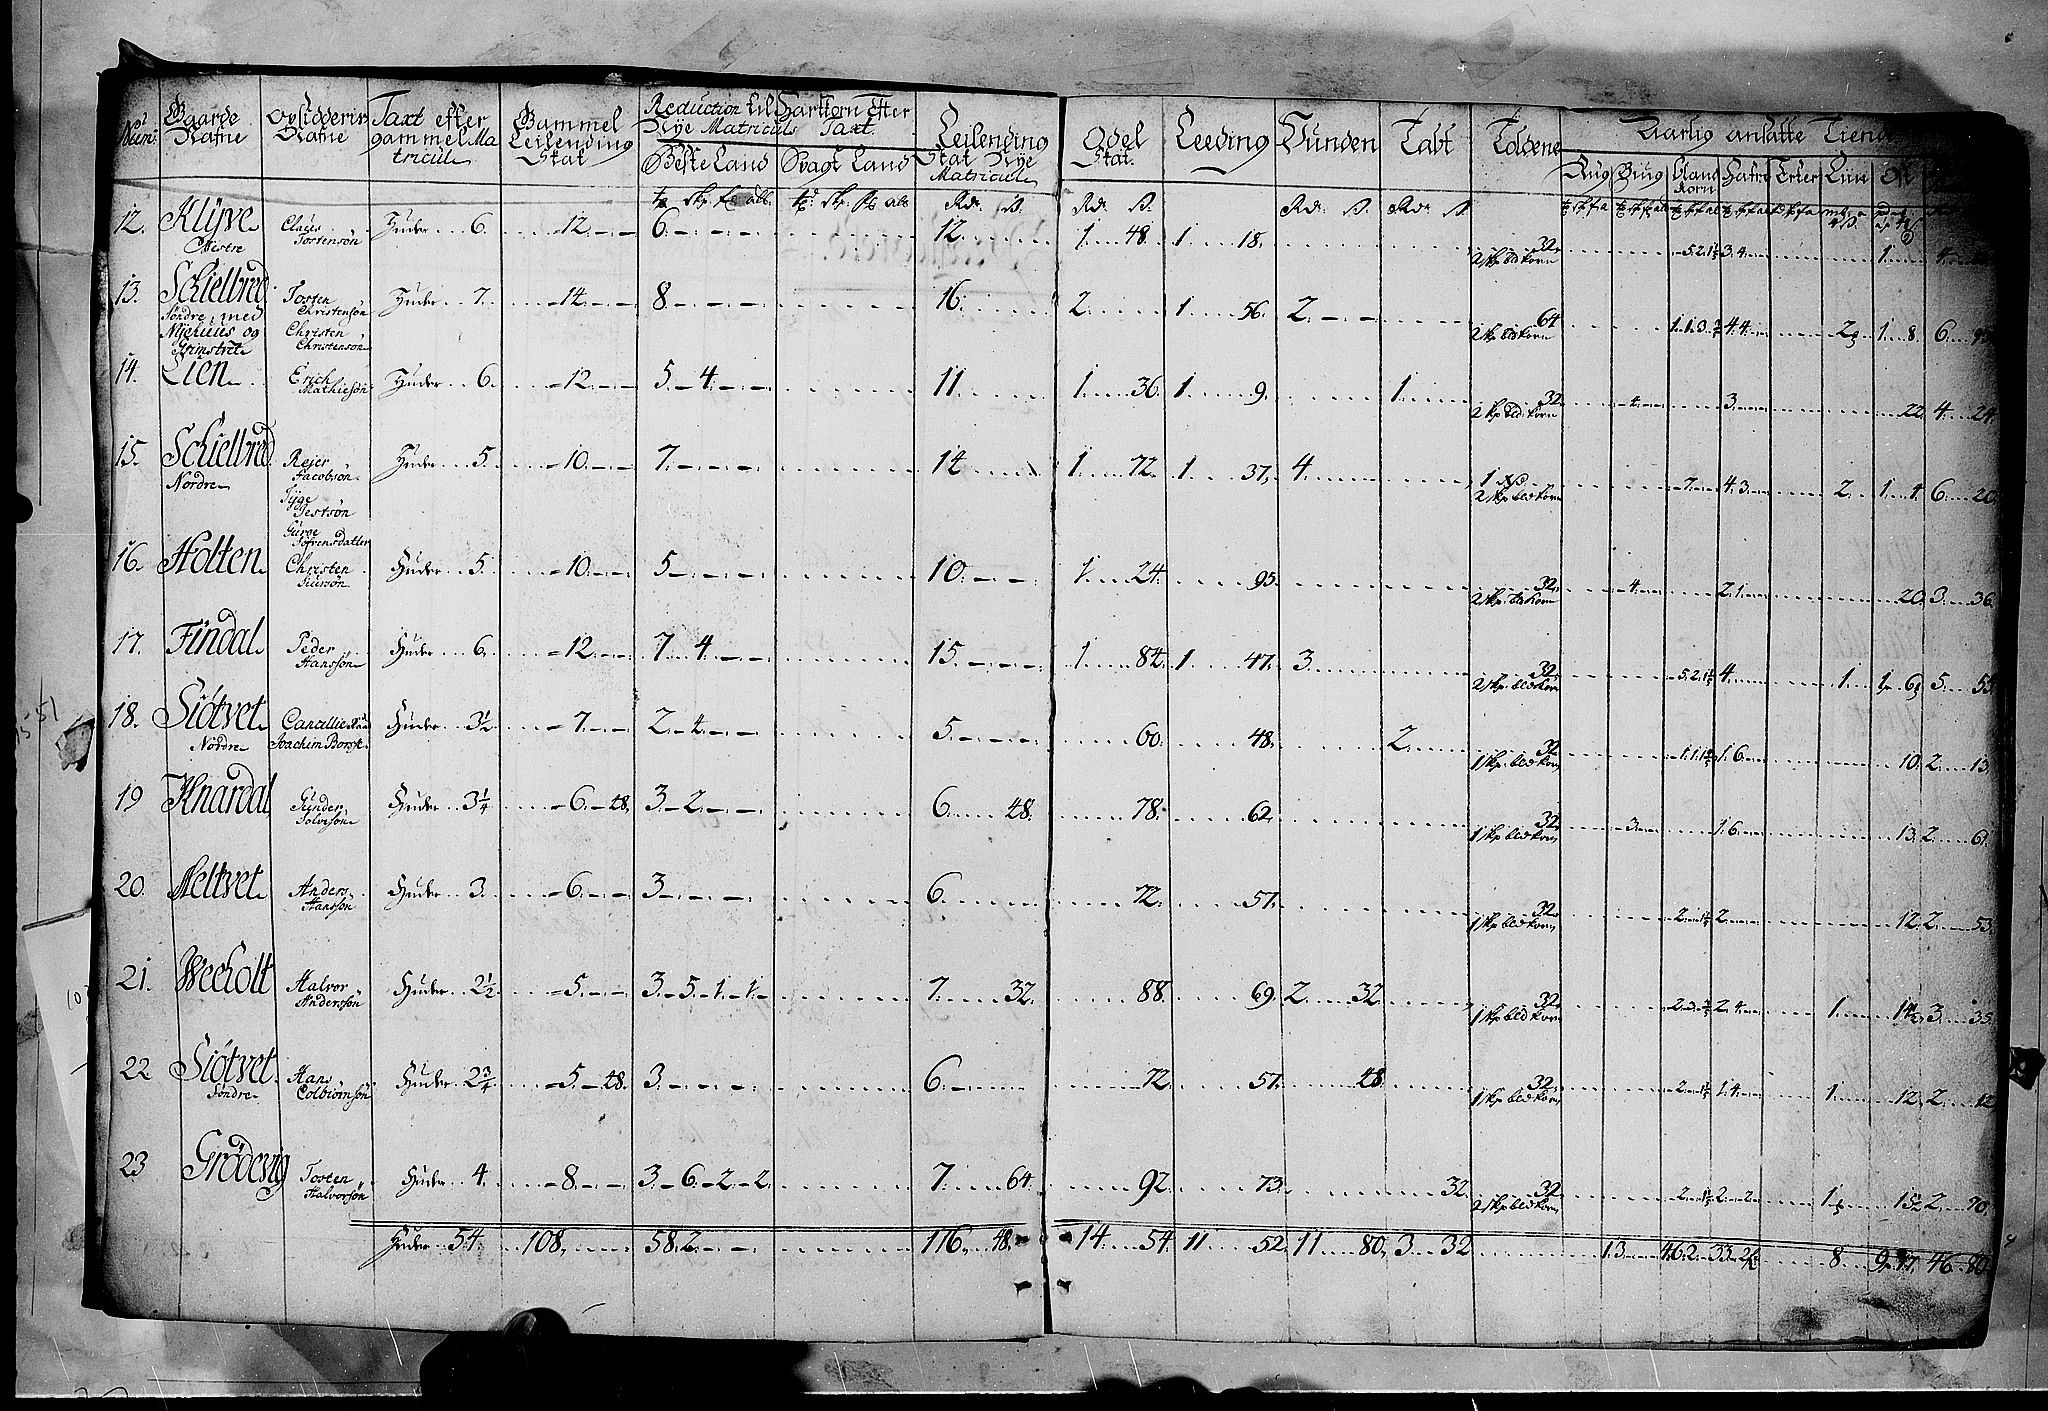 No Num: Gaarde Nafne Opsidderis Nafne Taxt efter gammel Matricul Gammel Leilending Skat Reduction til Nÿe Matriculs Hartkorn Efter Taxt. Leilending Skat Nÿe Matricul Odel Skat Leeding Vunden Tabt Toldene Aarlig ansatte Tiende
Beste Land Svagt Land Rug Biug Bland Korn Hafre Erter Liin Ost
Rdr. ß. Rdr. ß. Rdr. ß. Rdr. ß.
12. Klÿve Westre Claus Torstensøn Huder 6. 12. 6. 12 1 48. 1 18. 32. 2 skp. bld korn 5.2.1½ 3.4. 1 4
13. Schielbred Søndre med Nÿehuus og Grimstvet Tosten Christensøn Christen Christensøn Huder 7. 14. 8. 16. 2 1 56. 2 64 2 skp bld korn 1.1.3. 4.4. 2 1 8. 6
14. Lien Erich Mathiesøn Huder 6. 12. 5. 4. 11. 1 36. 1 9. 1 32. 2 skp bld korn 4. 3. 22 4 24.
15. Schielbred Nordre Rejer Jacobsøn Tÿge Jestsøn Giuroe Sørensdatter Huder 5. 10. 7. 14 1 72. 1 37. 4 2 skp bld korn 7. 4.3. 2. 1 4 6 20
16. Holten Christen Siursøn Huder 5. 10. 5. 10. 1 24. 95. 32. 2 skp. bld korn 4. 2.1. 20. 3. 36.
17. Findal Peder Hanssøn Huder 6. 12. 7. 4. 15. 1 84. 1 47. 3 32. 2 skp bld korn 5.2.1½ 4. 1 1 6 5.
18. Siøtvet Nordre Joachim Borse Huder 3½ 7. 2. 4. 5. 60. 48. 2. 32. 1 skp. bld korn 1.1.1½ 1.6. 10. 2 13.
19 Knardal Gunder Solvesøn Huder 3¼ 6. 48. 3. 2. 6 48. 78. 62. 32. 1 skp bld korn 3. 1.6. 13. 2. 61.
20. Neltvet Anders Hanssøn Huder 3. 6. 3. 6. 72. 57. 32. 1 skp bld korn 2. 2. 12. 2. 53.
21. Weeholt Halvor Anderssøn Huder 2½ 5. 3. 5. 1. 1. 7. 32. 88. 69. 2. 32. 32. 1 skp bld korn 2. 2.4. 1. 14½ 3. 35.
22 Siøtvet Søndre Hans Colbiørnsøn Huder 2¾ 5. 48. 3. 6. 72. 57. 48 32. 1 skp bld korn 2. 1.4. 1. 12. 2. 12
23 Grødevig Tosten Halvorsøn Huder 4. 8. 3. 6. 2. 2. 7 64. 92. 73. 32. 32. 2 skp bld korn 2. 2. 2. 1 15 2. 70.
Huder 54. 108. 58.2. 116. 48. 14 54. 11. 52. 11 80. 3. 32 13. 8. 9 46 80.